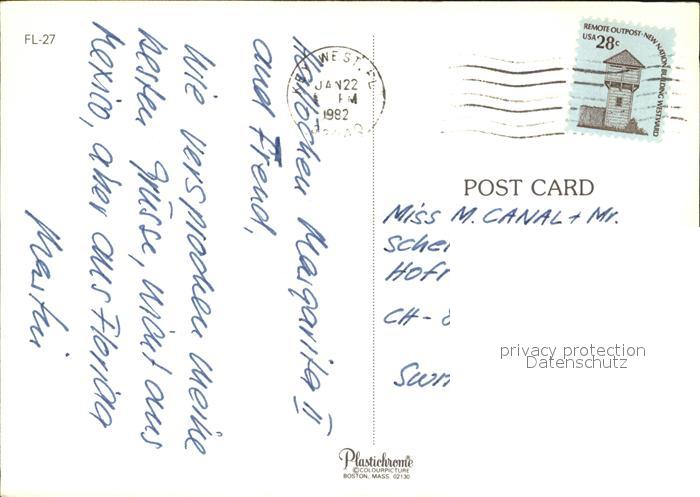 FL-27
KEY WEST, FL
JAN 22
PM
1982
REMOTE OUTPOST·NEW NATION BUILDING WESTWARD
USA 28c
Hallöchen Margarita II
and Frend,
wie versprochen meine
besten Grüsse, nicht aus
Mexico, aber aus Florida
Martin
POST CARD
Miss M. CANAL + Mr.
Sche
HOF
CH-8
Swi
privacy protection
Datenschutz
Plastichrome®
©COLOURPICTURE
BOSTON, MASS. 02130